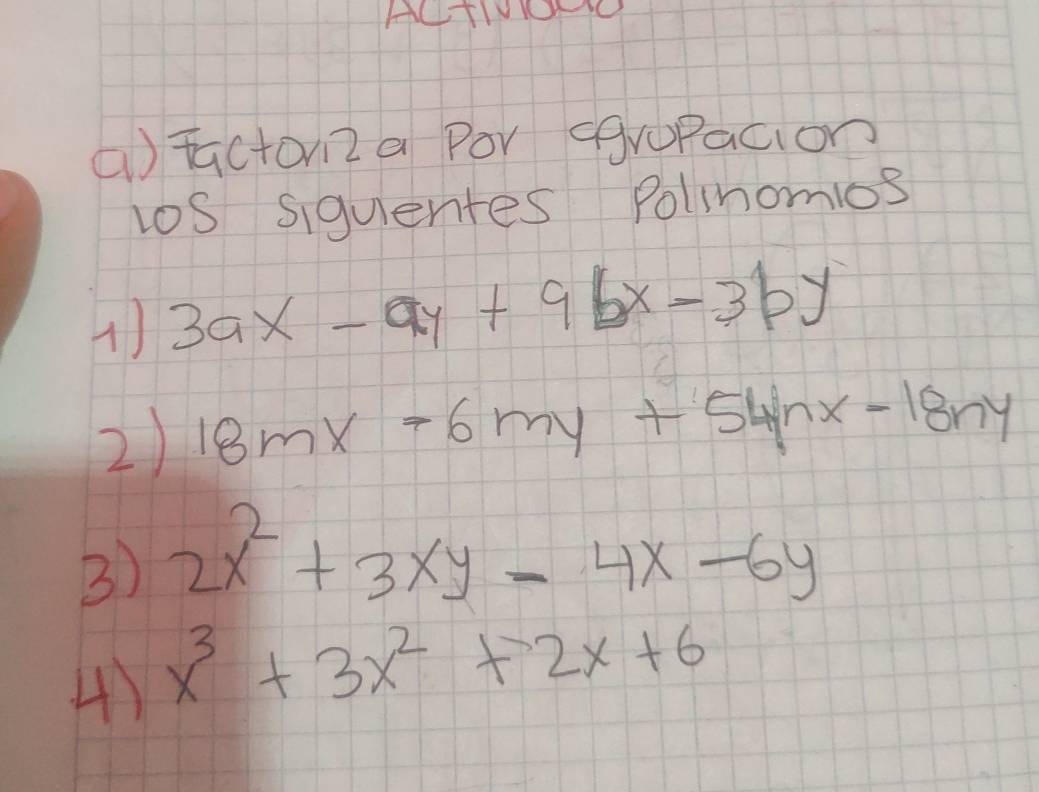 Actividad
a) Factoriza Por agrupacion
los siguientes Polinomios
1) 3ax - ay + 9bx - 3by
2) 18mx - 6my + 54nx - 18ny
3) 2x² + 3xy - 4x - 6y
4) x³ + 3x² + 2x + 6